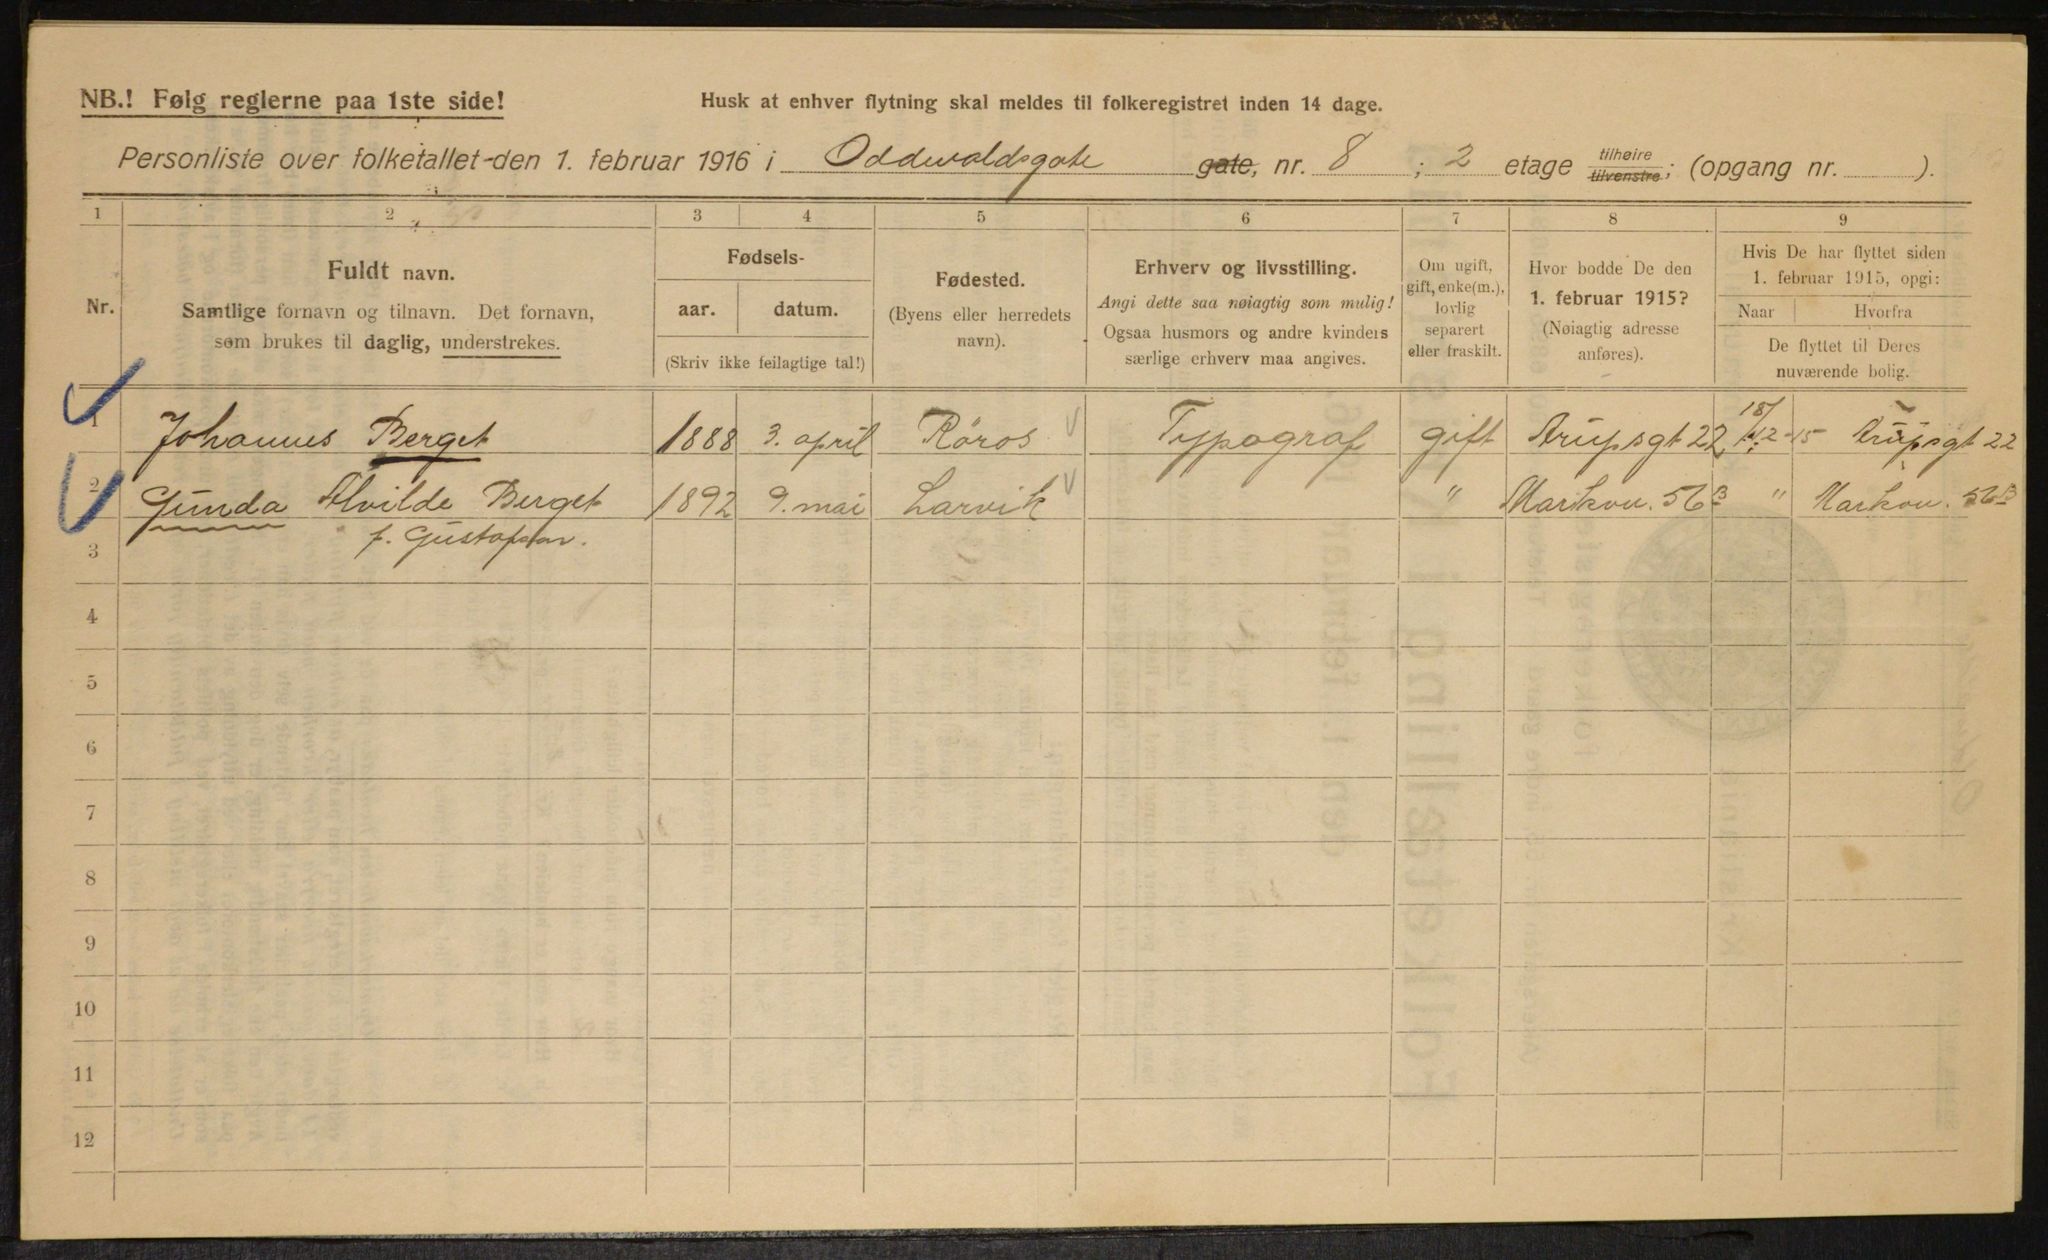 NB.! Følg reglerne paa 1ste side!
Husk at enhver flytning skal meldes til folkeregistret inden 14 dage.
Personliste over folketallet den 1. februar 1916 i Oddwaldsgate gate, nr. 8 ; 2 etage tilhøire tilvenstre; (opgang nr. ).
1 2 3 4 5 6 7 8 9
Nr.
Fuldt navn.
Samtlige fornavn og tilnavn. Det fornavn,
som brukes til daglig, understrekes.
Fødsels-
aar. datum.
(Skriv ikke feilagtige tal!)
Fødested.
(Byens eller herredets
navn).
Erhverv og livsstilling.
Angi dette saa nøiagtig som mulig!
Ogsaa husmors og andre kvinders
særlige erhverv maa angives.
Om ugift,
gift, enke(m.),
lovlig
separert
eller fraskilt.
Hvor bodde De den
1. februar 1915?
(Nøiagtig adresse
anføres).
Hvis De har flyttet siden
1. februar 1915, opgi:
Naar Hvorfra
De flyttet til Deres
nuværende bolig.
1 Johannes Berget 1888 3. april Röros Typograf gift Arupsgt 22 18/12-15 Arupsgt 22
2 Gunda Alvilde Berget 1892 9. mai Larvik " Markov. 56B " Markov. 56B
f. Gustafson.
3
4
5
6
7
8
9
10
11
12